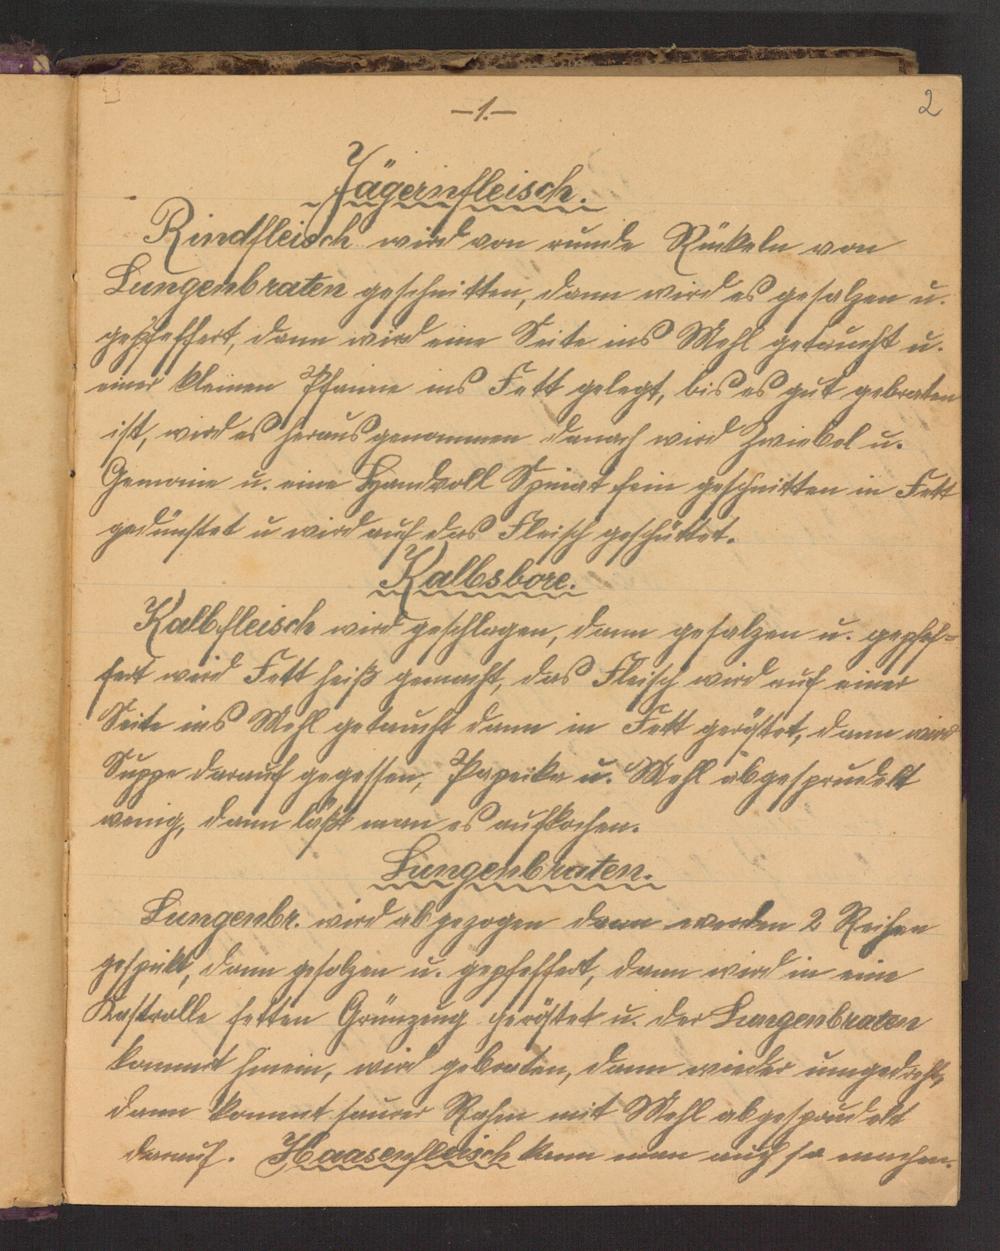 2
—1.—
Jägernfleisch.
Rindfleisch wird von runde Stückeln von
Lungenbraten geschnitten, dann wird es gesalzen u.
gepfeffert, dann wird eine Seite ins Mehl getaucht u.
einer kleinen Pfanne ins Fett gelegt, bis es gut gebraten
ist, wird es herausgenommen danach wird Zwiebel u.
u. eine Handvoll Spinat fein geschnitten in Fett
gedünstet u wird auf das Fleisch geschüttet.
Kalbsbore.
Kalbfleisch wird geschlagen, dann gesalzen u. gepfef-
fert wird Fett heiß gemacht, das Fleisch wird auf einer
Seite ins Mehl getaucht dann in Fett geröstet, dann wird
Suppe darauf gegossen, Paprika u. Mehl abgesprudelt
wenig, dann läßt man es aufkochen.
Lungenbraten.
Lungenbr. wird abgezogen dann werden 2 Reihen
gespickt, dann gesalzen u. gepfeffert, dann wird in eine
Kastrolle fetten Grünzeug geröstet u. der Lungenbraten
kommt hinein, wird gebraten, dann wieder umgedreht,
dann kommt saurer Rahm mit Mehl abgesprudelt
darauf. Haasenfleisch kann man auch so machen.